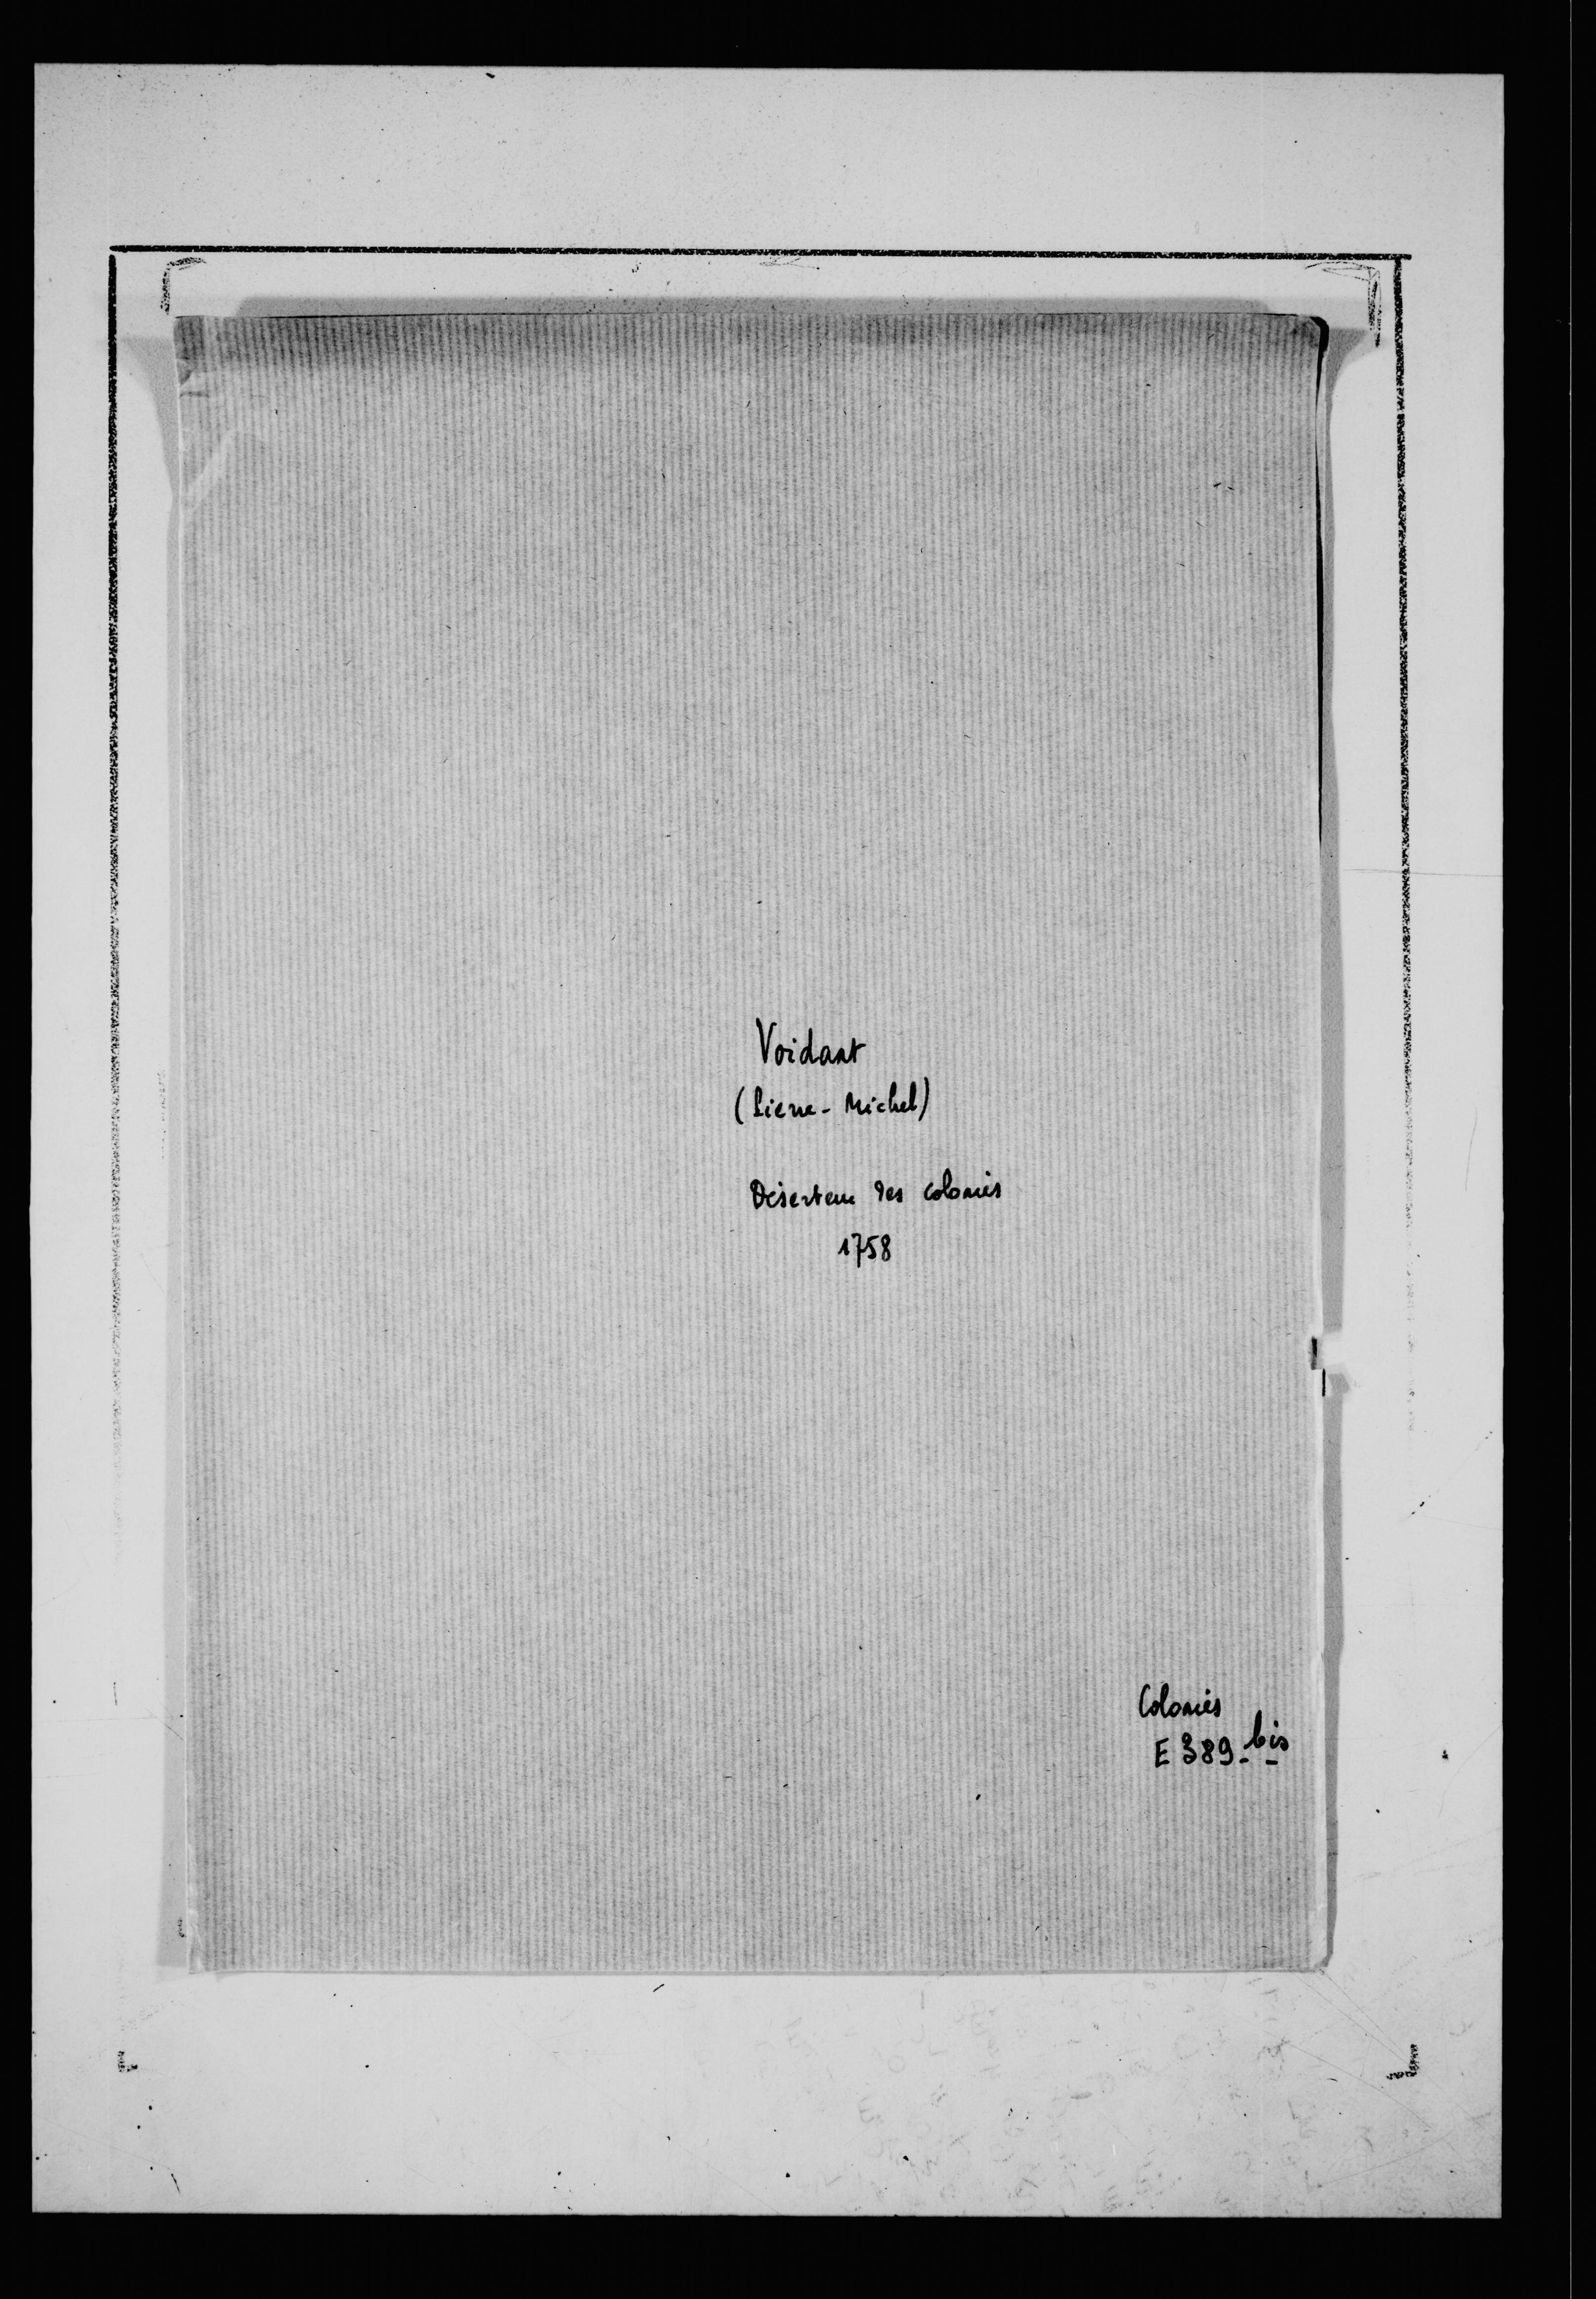 Voidant
(Pierre-Michel)
Déserteur des Colonies
1758
Colonies
E 389 bis